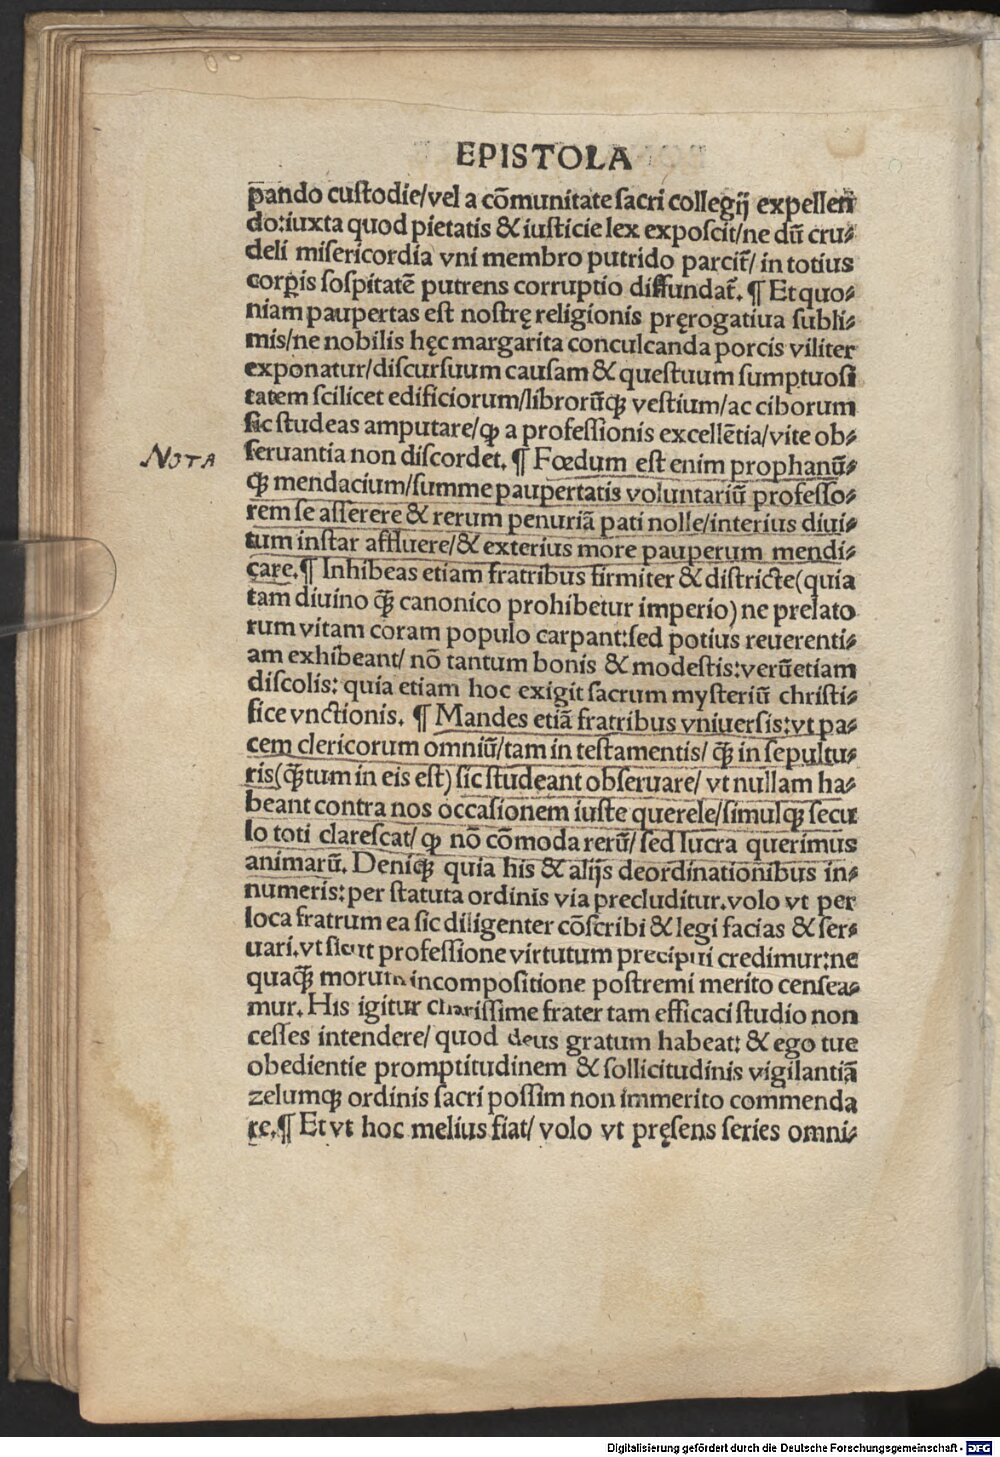 EPISTOLA
pando custodie/vel a cõmunitate sacri collegij expellen
do:iuxta quod pietatis & iusticie lex exposcit/ne dũ cru⸗
deli misericordia vni membro putrido parcit̃/ in totius
corꝑis sospitatẽ putrens corruptio diffundat̃. ¶ Et quo⸗
niam paupertas est nostrę religionis pręrogatiua subli⸗
mis/ne nobilis hęc margarita conculcanda porcis viliter
exponatur/discursuum causam & questuum sumptuosi
tatem scilicet edificiorum/librorũqꝫ vestium/ac ciborum
sic studeas amputare/ꝙ a professionis excellẽtia/vite ob⸗
NOTA
seruantia non discordet. ¶ Fœdum est enim prophanũ⸗
qꝫ mendacium/summe paupertatis voluntariũ professo⸗
rem se asserere & rerum penuriã pati nolle/interius diui⸗
tum instar affluere/& exterius more pauperum mendi⸗
care.¶ Inhibeas etiam fratribus firmiter & districte(quia
tam diuino q̃ꝫ canonico prohibetur imperio) ne prelato
rum vitam coram populo carpant:sed potius reuerenti⸗
am exhibeant/ nõ tantum bonis & modestis:verũetiam
discolis: quia etiam hoc exigit sacrum mysteriũ christi⸗
fice vnctionis. ¶ Mandes etiã fratribus vniuersis:vt pa⸗
cem clericorum omniũ/tam in testamentis/ q̃ꝫ in sepultu⸗
ris(q̃ꝫtum in eis est) sic studeant obseruare/ vt nullam ha⸗
beant contra nos occasionem iuste querele/simulqꝫ secu
lo toti clarescat/ ꝙ nõ cõmoda rerũ/ sed lucra querimus
animarũ. Deniqꝫ quia his & alijs deordinationibus in⸗
numeris:per statuta ordinis via precluditur.volo vt per
loca fratrum ea sic diligenter cõscribi & legi facias & ser⸗
uari.vt sicut professione virtutum precipui credimur:ne
quaq̃ꝫ morum incompositione postremi merito censea⸗
mur. His igitur charissime frater tam efficaci studio non
cesses intendere/ quod deus gratum habeat: & ego tue
obedientie promptitudinem & sollicitudinis vigilantiã
zelumqꝫ ordinis sacri possim non immerito commenda
re.¶ Et vt hoc melius fiat/ volo vt pręsens series omni⸗
Digitalisierung gefördert durch die Deutsche Forschungsgemeinschaft - DFG